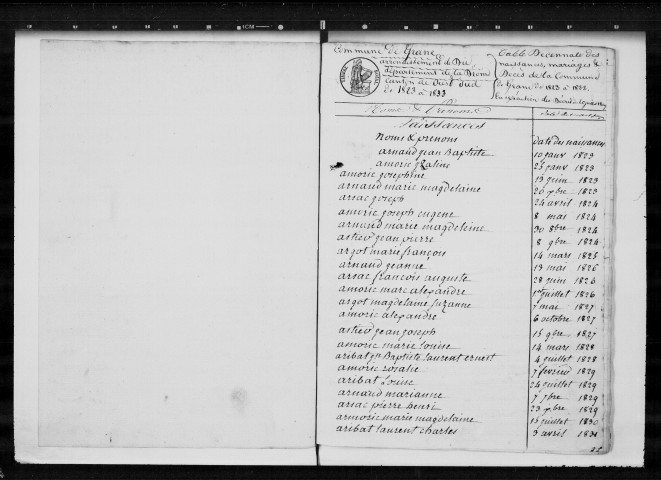 Commune de Grane
arrondissement de Die
département de la Drôme
Canton de Crest Sud
de 1823 à 1833
Table Décennale des
naissances, mariages &
Décès de la Commune
de Grane de 1823 à 1833.
Noms & Prénoms
Naissances
Noms & prenoms Date des naissances
arnaud jean Baptiste 10 janv 1823
amoric 25 janv 1823
amoric josephine 13 juin 1823
arnaud marie magdelaine 20 9bre 1823
arsac joseph 24 avril 1824
amoric joseph eugene 8 mai 1824
arnaud marie magdeleine 30 8bre 1824
astier jean pierre 8 9bre 1824
argot marie françois 14 mars 1825
arnaud jeanne 19 mai 1826
arsac françois auguste 28 juin 1826
amoric marc alexandre 1er juillet 1826
argot magdelaine suzanne 7 mai 1827
amoric alexandre 6 octobre 1827
astier jean joseph 15 9bre 1827
amoric marie Louise 14 mars 1828
aribat jn Baptiste laurent ernest 4 juillet 1828
amoric rosalie 7 fevrier 1829
aribat Louise 24 juillet 1829
arnaud marianne 7 7bre 1829
arsac pierre henri 23 9bre 1829
armoric marie magdelaine 15 juillet 1830
aribat laurent charles 3 avril 1831